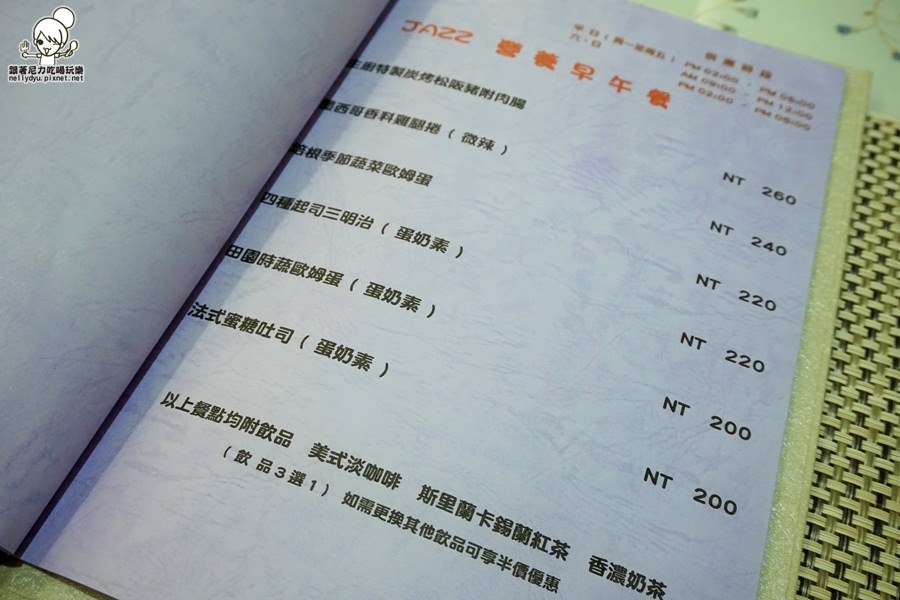 跟著尼力吃喝玩樂
nellydyu.pixnet.net
供應時段
平日(周一至周五) PM 02:00 - PM 05:00
六、日 AM 09:00 - PM 12:00
PM 02:00 - PM 05:00
JAZZ 營養早午餐
主廚特製炭烤松阪豬附肉腸 NT 260
墨西哥香料雞腿捲 ( 微辣 ) NT 240
培根季節蔬菜歐姆蛋 NT 220
四種起司三明治 ( 蛋奶素 ) NT 220
田園時蔬歐姆蛋 ( 蛋奶素 ) NT 200
法式蜜糖吐司 ( 蛋奶素 ) NT 200
以上餐點均附飲品 美式淡咖啡 斯里蘭卡錫蘭紅茶 香濃奶茶
( 飲品3選1 ) 如需更換其他飲品可享半價優惠